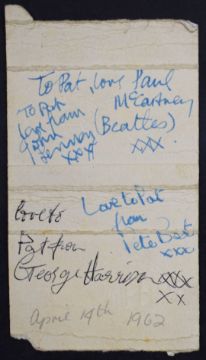 To Pat, Love Paul
McCartney
(Beatles)
XXX
To Pat
love from
John
Lennon
XXX
Love to Pat
from
Pete Best
XXX
love to
Pat from
George Harrison XXX
XX
April 14th 1962